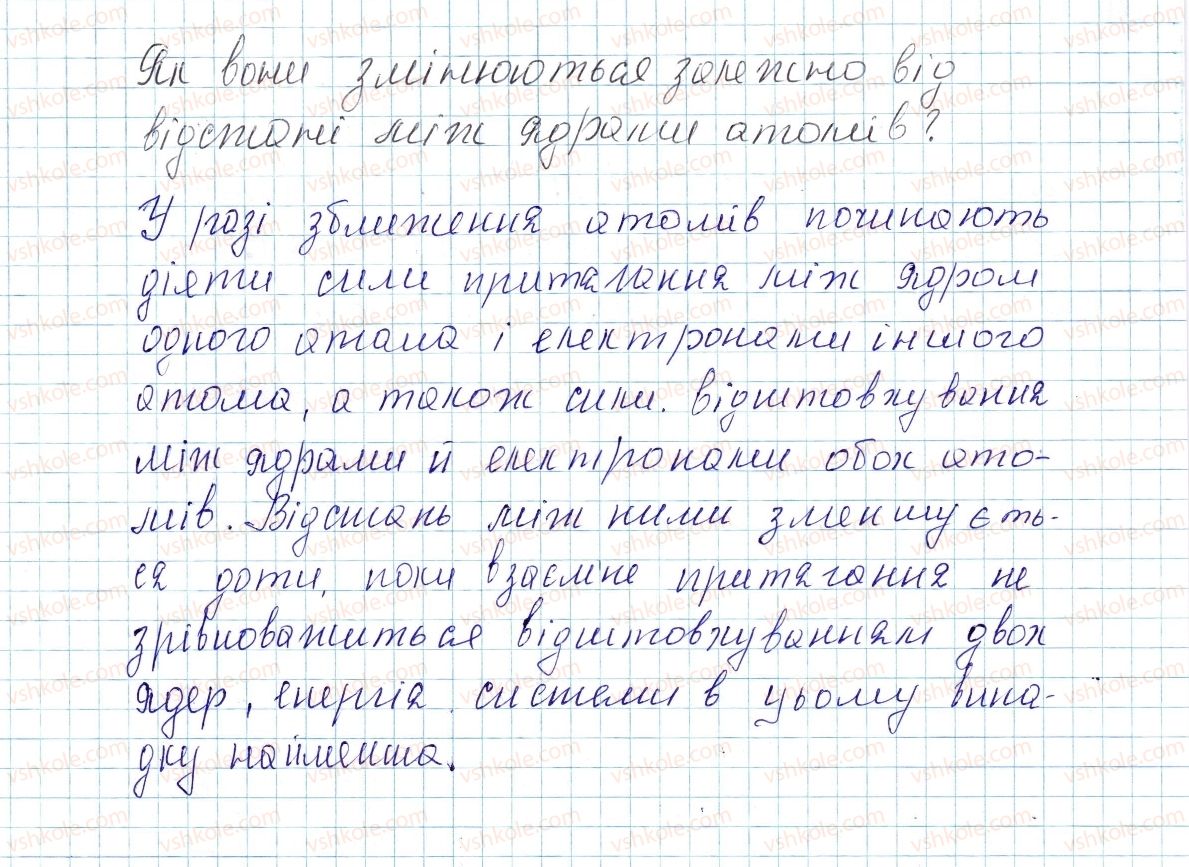 Як вони змінюються залежно від
відстані між ядрами атомів?
У разі зближення атомів починають
діяти сили притягання між ядром
одного атама і електронами іншого
атома, а також сили. відштовхування
між ядрами й електронами обох ато-
мів. Відстань між ними зменшуєть-
ся доти, поки взаємне притягання не
зрівноважиться відштовхуванням двох
ядер, енергія системи в цьому випа-
дку найменша.